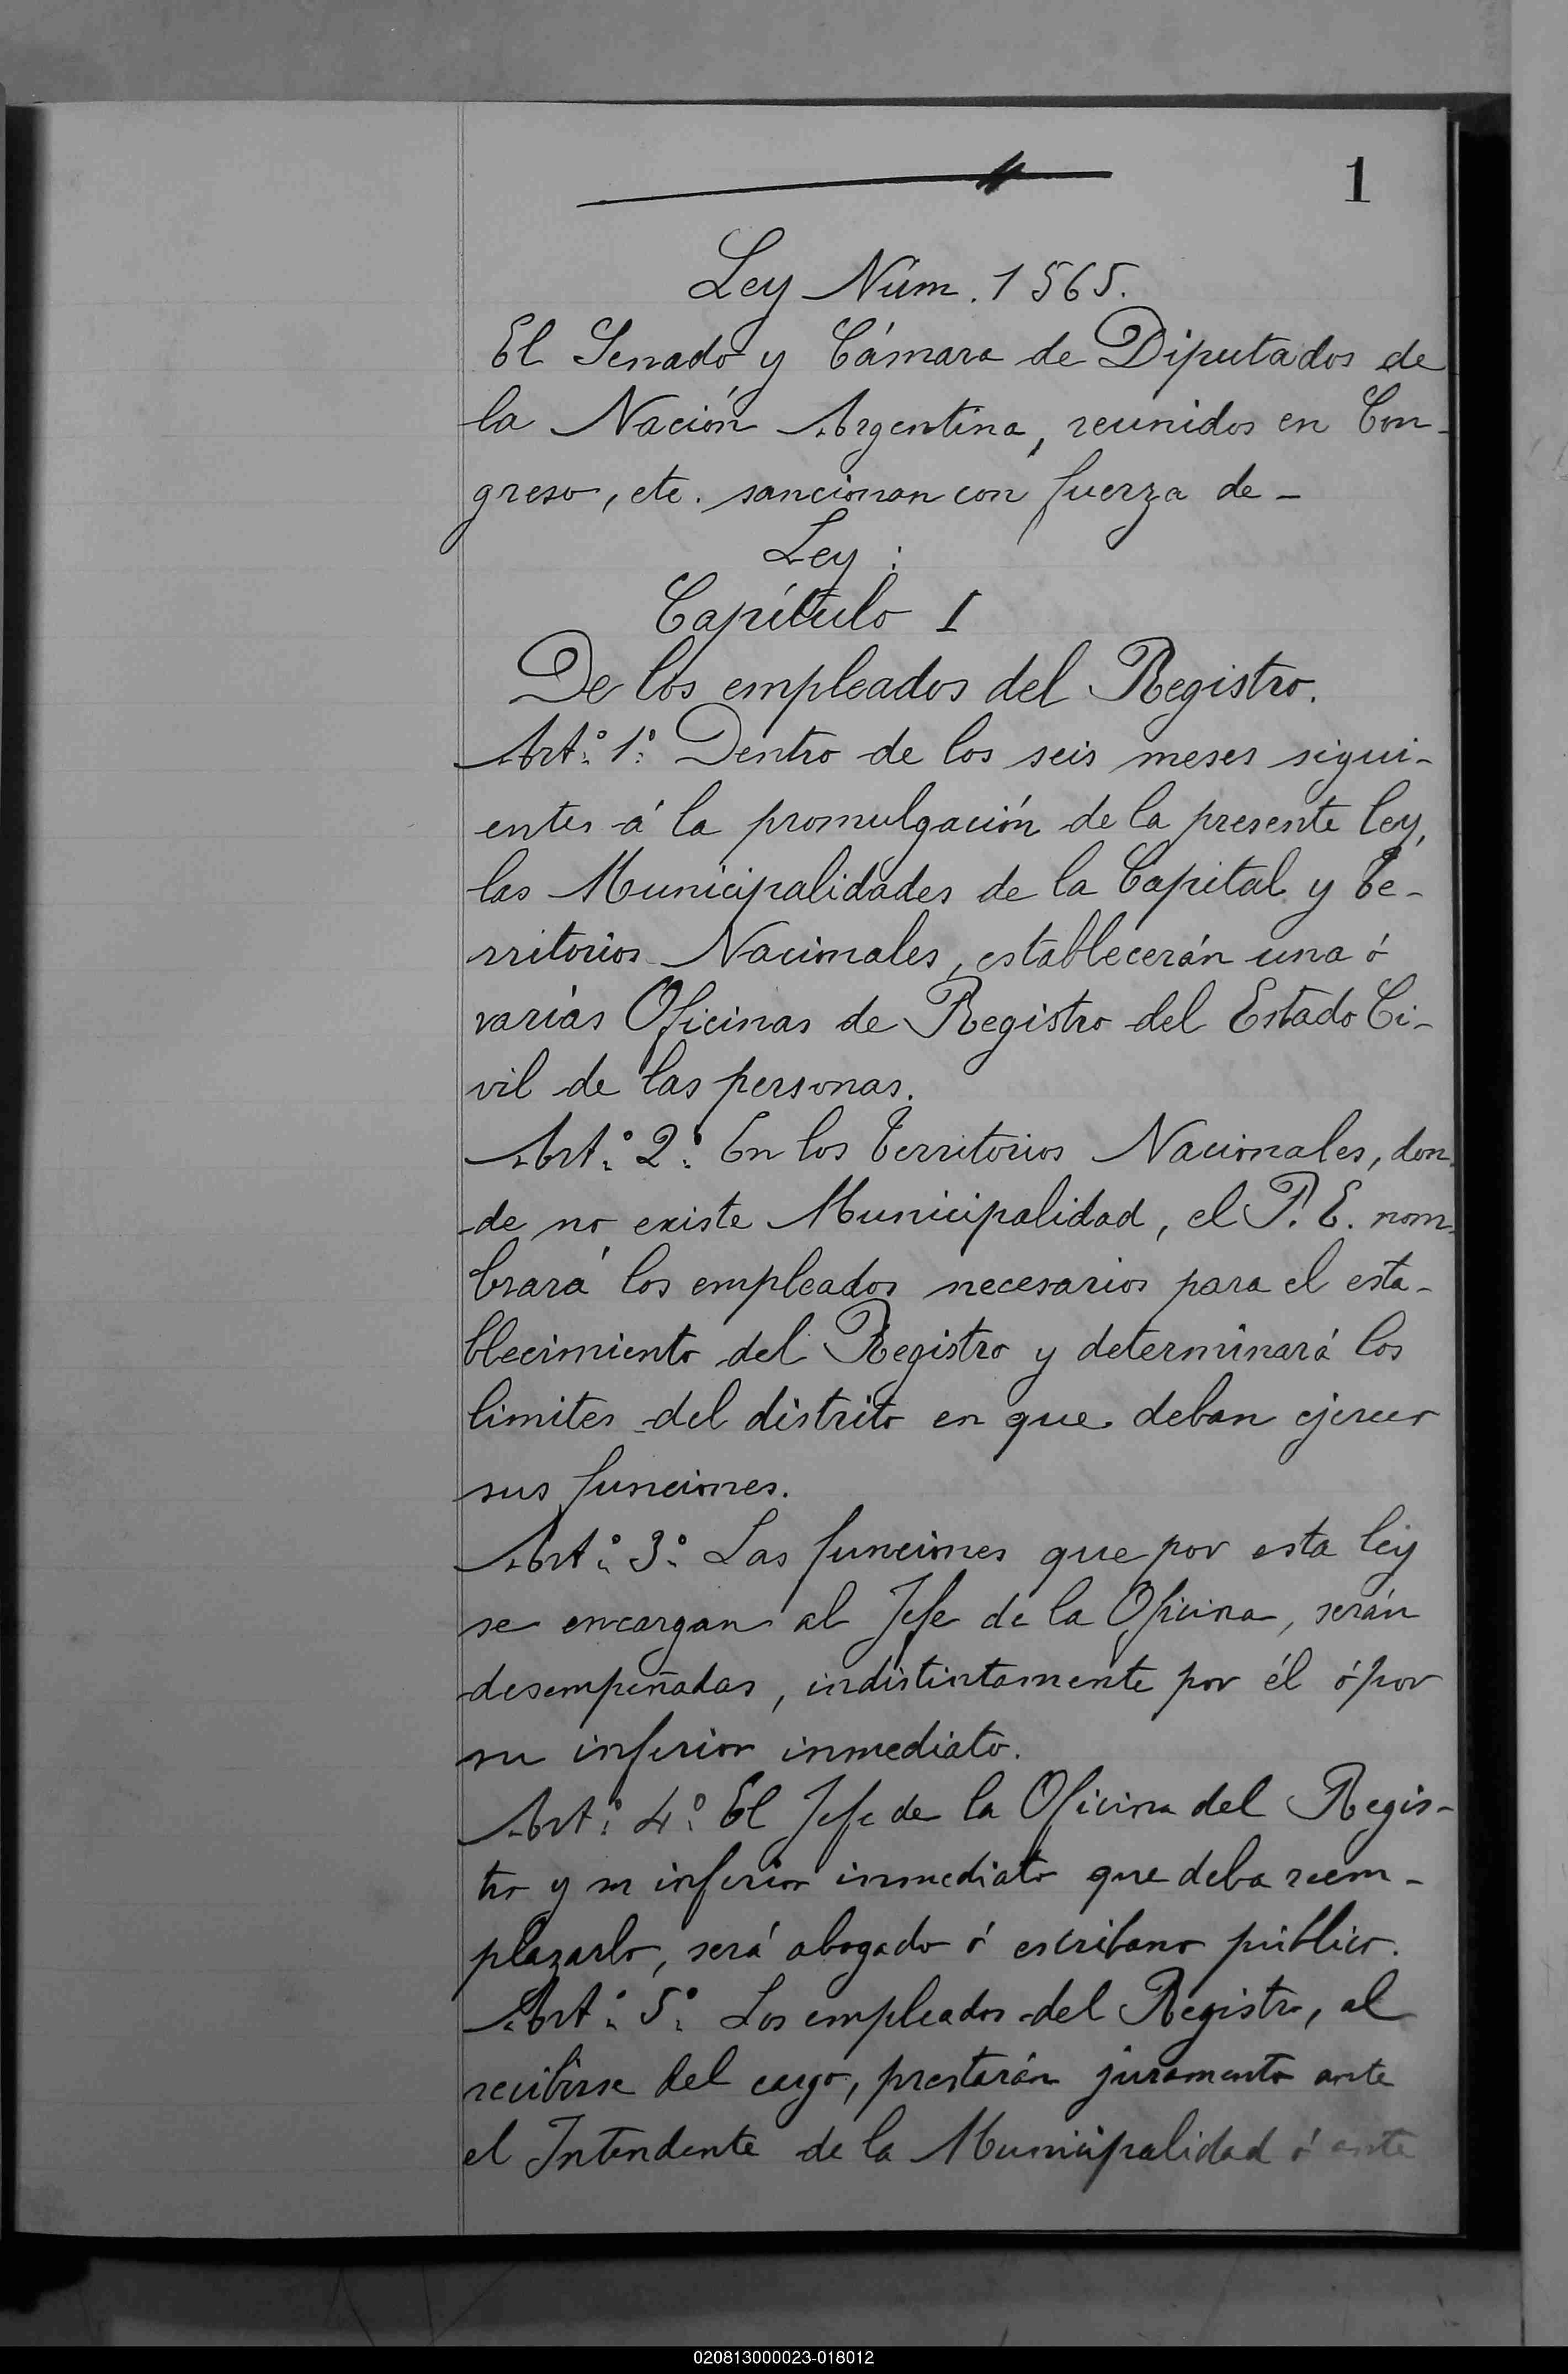 1
Ley Núm. 1565.
El Senado y Cámara de Diputados de
la Nación Argentina, reunidos en Con-
greso, etc. sancionan con fuerza de-
Ley:
Capítulo I
De los empleados del Registro.
Art.º 1.º Dentro de los seis meses sigui-
entes á la promulgación de la presente ley,
las Municipalidades de la Capital y Te-
rritorios Nacionales, establecerán una ó
varias Oficinas de Registro del Estado Ci-
vil de las personas.
Art.º 2.º En los Territorios Nacionales, don-
de no existe Municipalidad, el P. E. nom-
brará los empleados necesarios para el esta-
blecimiento del Registro y determinará los
limites del distrito en que deban ejercer
sus funciones.
Art.º 3.º Las funciones que por esta ley
se encargan al Jefe de la Oficina, serán
desempeñadas, indistintamente por él ó por
su inferior inmediato.
Art.º 4.º El Jefe de la Oficina del Regis-
tro y su inferior inmediato que deba reem-
plazarlo, será abogado ó escribano público.
Art.º 5.º Los empleados del Registro, al
recibirse del cargo, prestarán juramento ante
el Intendente de la Municipalidad ó ante
020813000023-018012